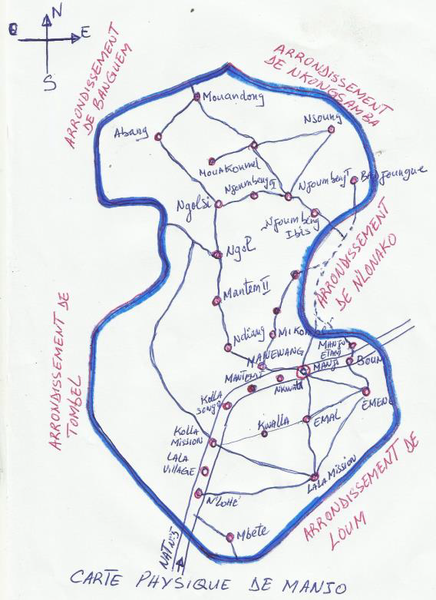 N
O E
S
ARRONDISSEMENT
DE BANGUEM
ARRONDISSEMENT
DE NKONGSAMBA
Mouandong
Abang
Nsoung
Mouakoumel
Ngoumbeng I
Ngolsi
Ngoumbeng
Ibis
Ngol
ARRONDISSEMENT
DE N'LONAKO
Mantem II
Ndiang
MANEWANG
MANJO
ETAGE
BOUM
MANJO
Nkwata
KOLLA
EMAL
KWALLA
KOLLA
MISSION
LALA
VILLAGE
LALA MISSION
N'LOHE'
Mbété
NAT N°5
ARRONDISSEMENT DE
TOMBEL
ARRONDISSEMENT DE
LOUM
CARTE PHYSIQUE DE MANJO